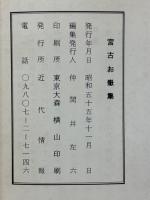 宮古お嶽集
発行年月日 昭和五十五年十一月 日
編集発行人 仲間井左六
印刷所 東京大森 横山印刷
発行所 近代情報
電話 〇九八〇七―二―七一四六